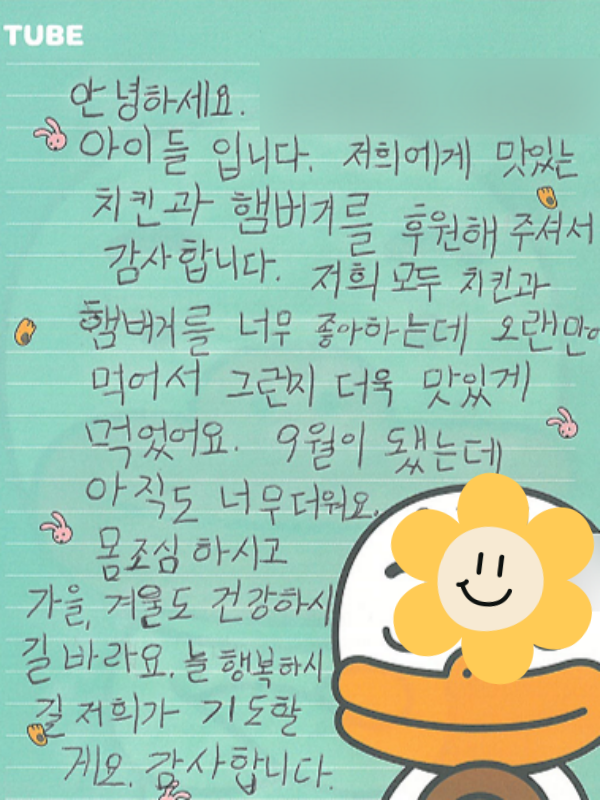 TUBE
안녕하세요.
아이들 입니다. 저희에게 맛있는
치킨과 햄버거를 후원해 주셔서
감사합니다. 저희 모두 치킨과
햄버거를 너무 좋아하는데 오랜만에
먹어서 그런지 더욱 맛있게
먹었어요. 9월이 됐는데
아직도 너무 더워요.
몸조심 하시고
가을, 겨울도 건강하시
길 바라요. 늘 행복하시
길 저희가 기도할
게요. 감사합니다.